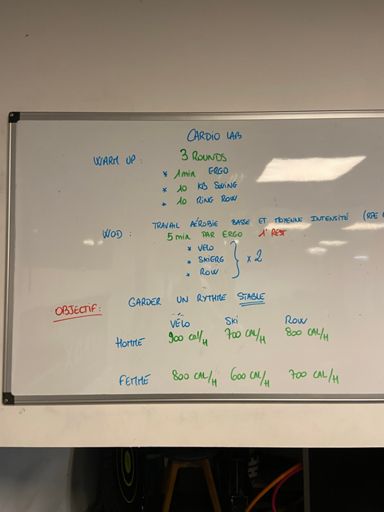 CARDIO LAB
WARM UP : 3 ROUNDS
* 1 min ERGO
* 10 KB SWING
* 10 RING ROW
TRAVAIL AÉROBIE BASE ET MOYENNE INTENSITÉ (RPE
WOD : 5 min PAR ERGO 1' REST
* VELO
* SKIERG } x 2
* ROW
OBJECTIF : GARDER UN RYTHME STABLE
VÉLO SKI ROW
HOMME 900 CAL/H 700 CAL/H 800 CAL/H
FEMME 800 CAL/H 600 CAL/H 700 CAL/H